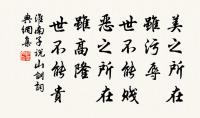 美之所在
雖污辱
世不能賤
惡之所在
雖高隆
世不能貴
淮南子说山訓詞
典網集